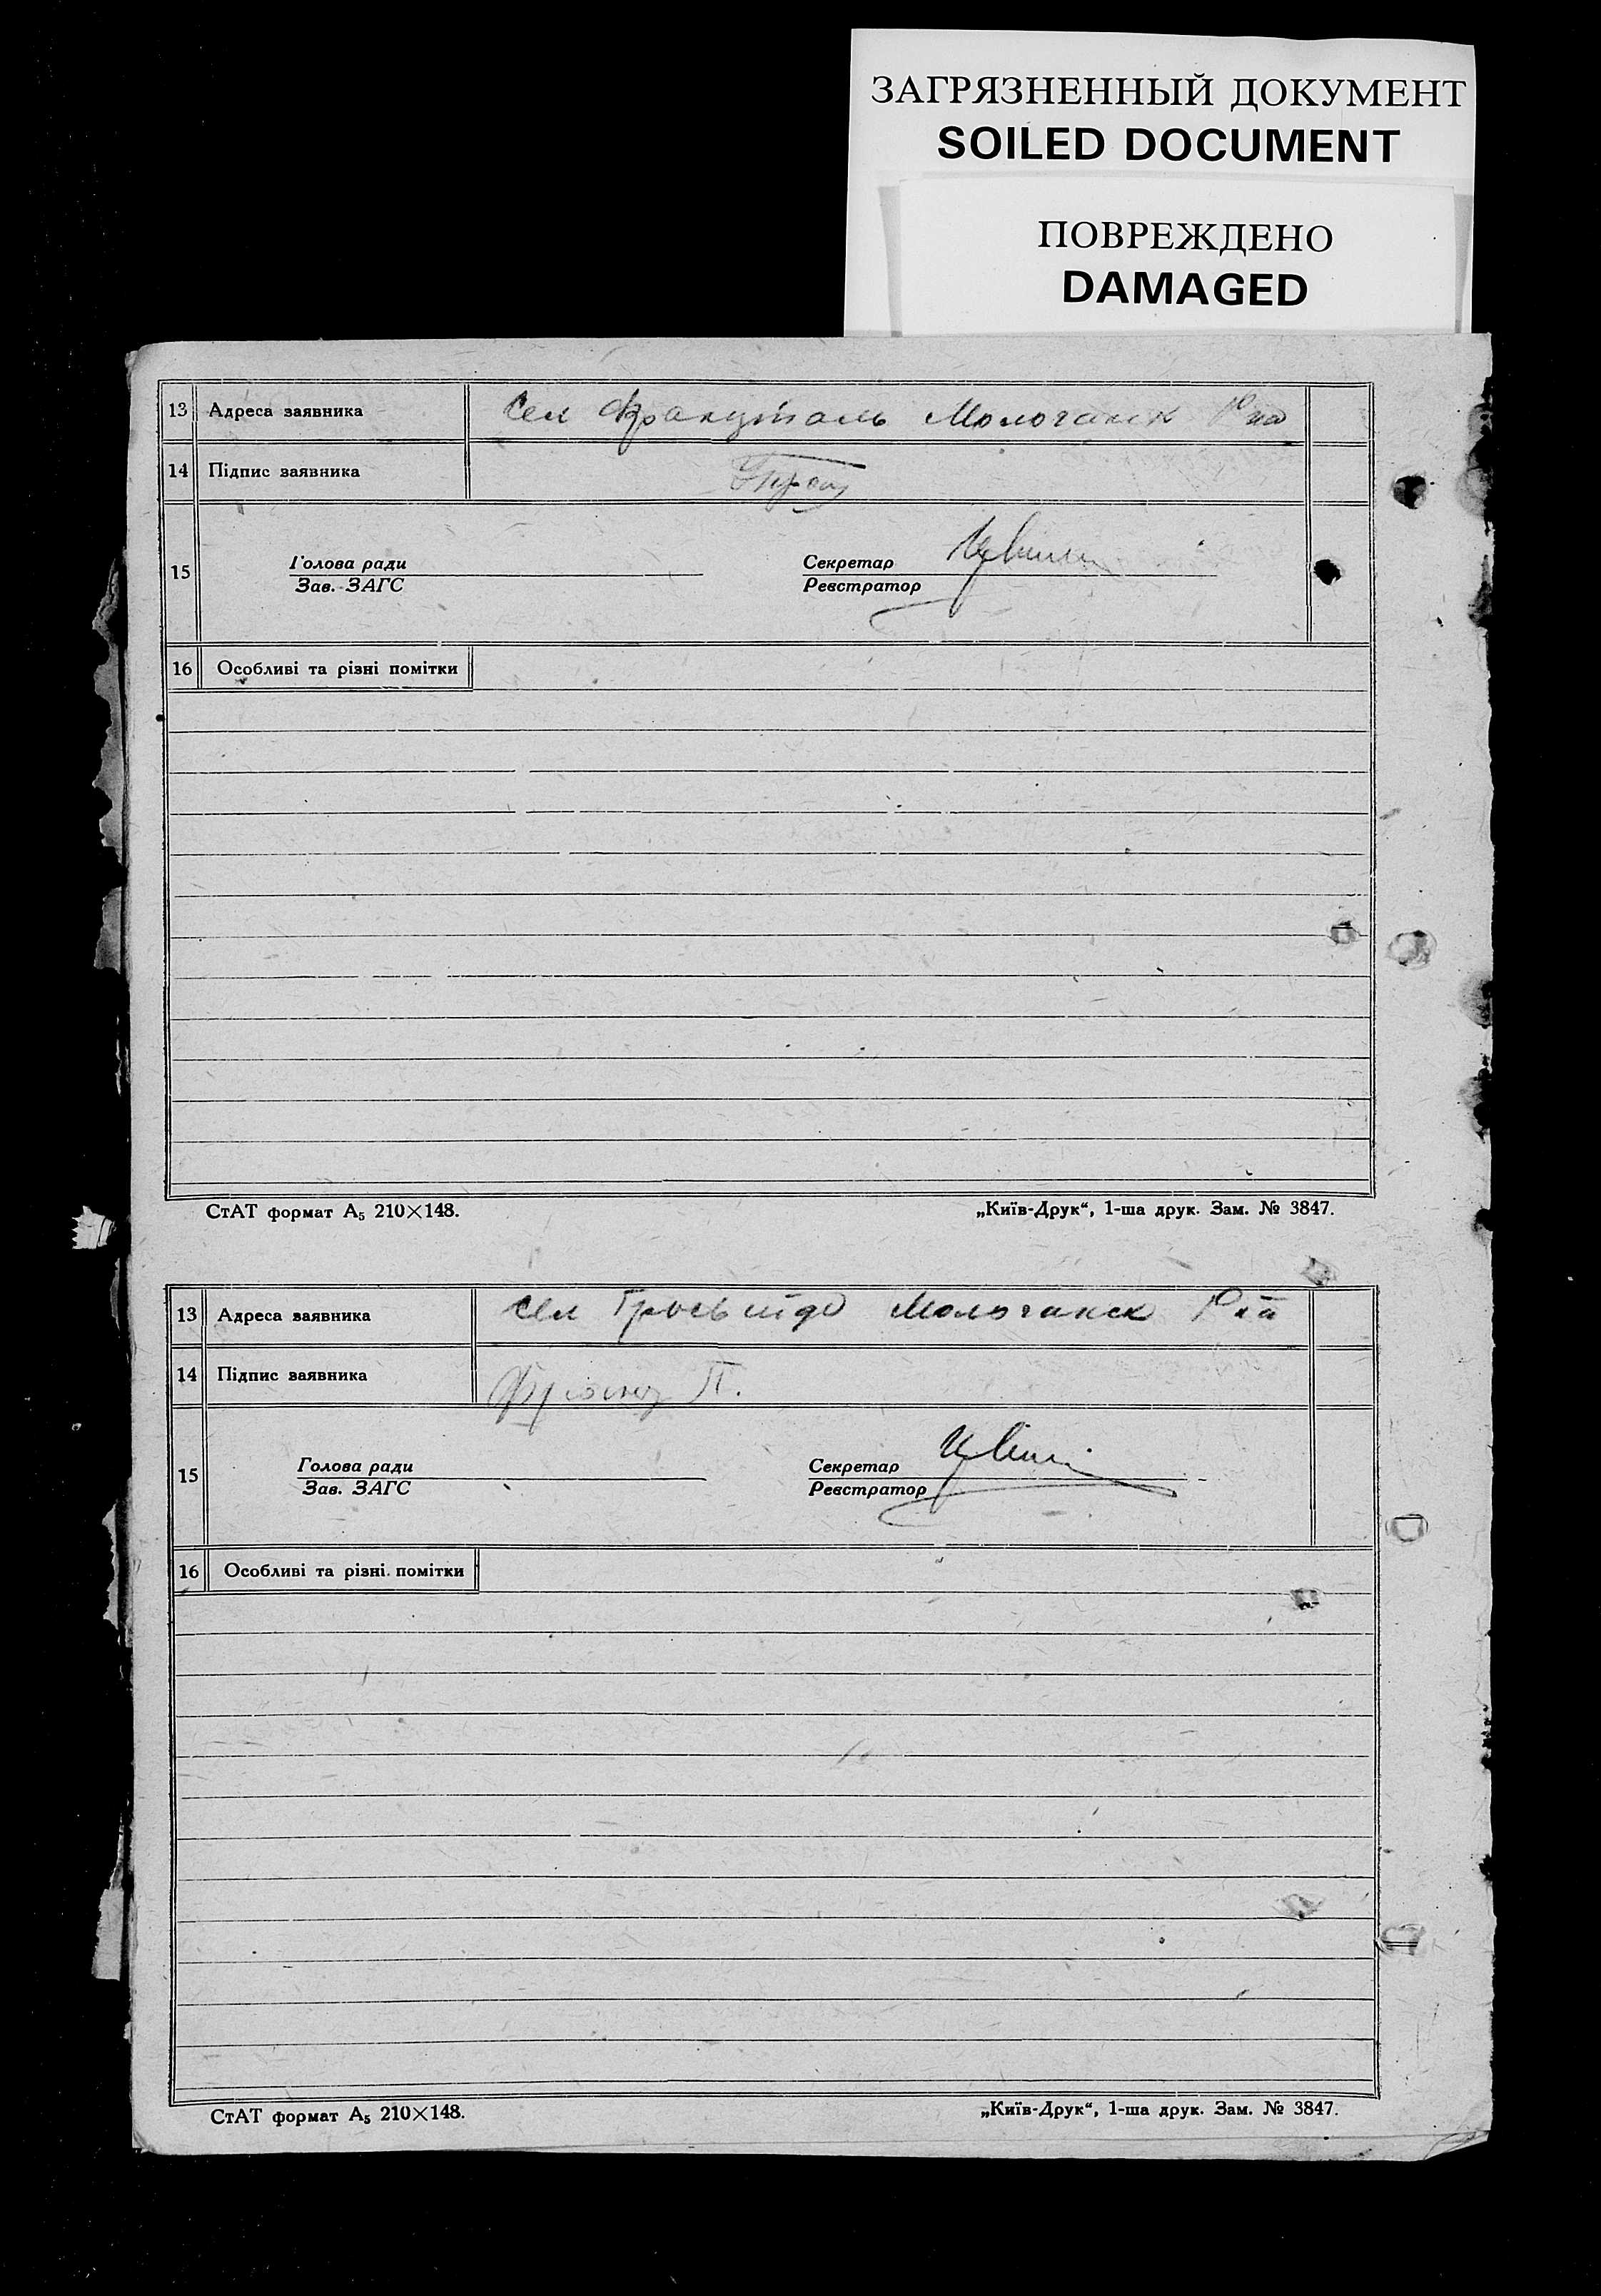 ЗАГРЯЗНЕННЫЙ ДОКУМЕНТ
SOILED DOCUMENT
ПОВРЕЖДЕНО
DAMAGED
13 Адреса заявника Сел Молочанск
14 Підпис заявника
15 Голова ради Секретар
Зав. ЗАГС Реєстратор
16 Особливі та різні помітки
СтАТ формат А₅ 210×148. „Київ-Друк“, 1-ша друк. Зам. № 3847.
13 Адреса заявника Сел Молочанск
14 Підпис заявника П.
15 Голова ради Секретар
Зав. ЗАГС Реєстратор
16 Особливі та різні помітки
СтАТ формат А₅ 210×148. „Київ-Друк“, 1-ша друк. Зам. № 3847.